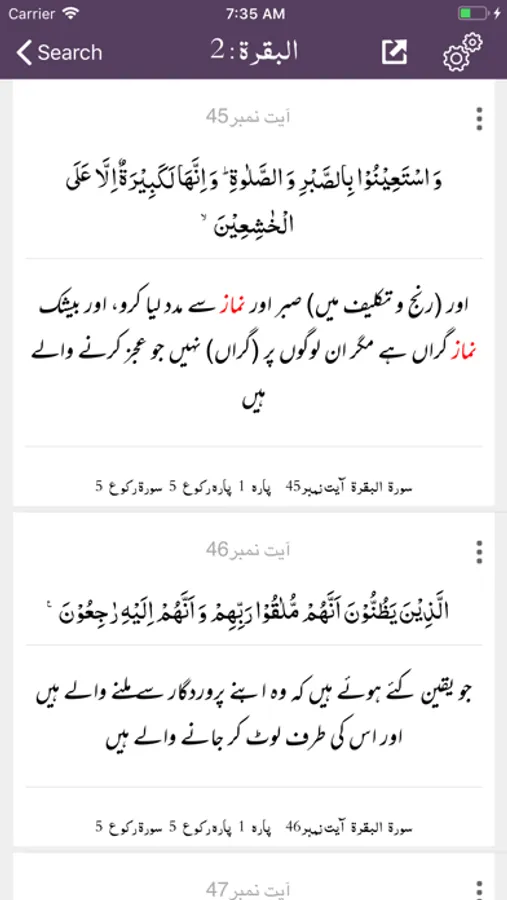 Carrier 7:35 AM
Search البقرة: 2
آیت نمبر45
وَاسْتَعِيْنُوْا بِالصَّبْرِ وَالصَّلٰوةِ ؕ وَاِنَّهَا لَكَبِيْرَةٌ اِلَّا عَلَى
الْخٰشِعِيْنَ ۙ
اور (رنج و تکلیف میں) صبر اور نماز سے مدد لیا کرو، اور بیشک
نماز گراں ہے مگر ان لوگوں پر (گراں) نہیں جو عجز کرنے والے
ہیں
سورۃ البقرۃ آیت نمبر45 پارہ 1 پارہ رکوع 5 سورۃ رکوع 5
آیت نمبر46
الَّذِيْنَ يَظُنُّوْنَ اَنَّهُمْ مُّلٰقُوْا رَبِّهِمْ وَاَنَّهُمْ اِلَيْهِ رٰجِعُوْنَ
جو یقین کئے ہوئے ہیں کہ وہ اپنے پروردگار سے ملنے والے ہیں
اور اس کی طرف لوٹ کر جانے والے ہیں
سورۃ البقرۃ آیت نمبر46 پارہ 1 پارہ رکوع 5 سورۃ رکوع 5
آیت نمبر47